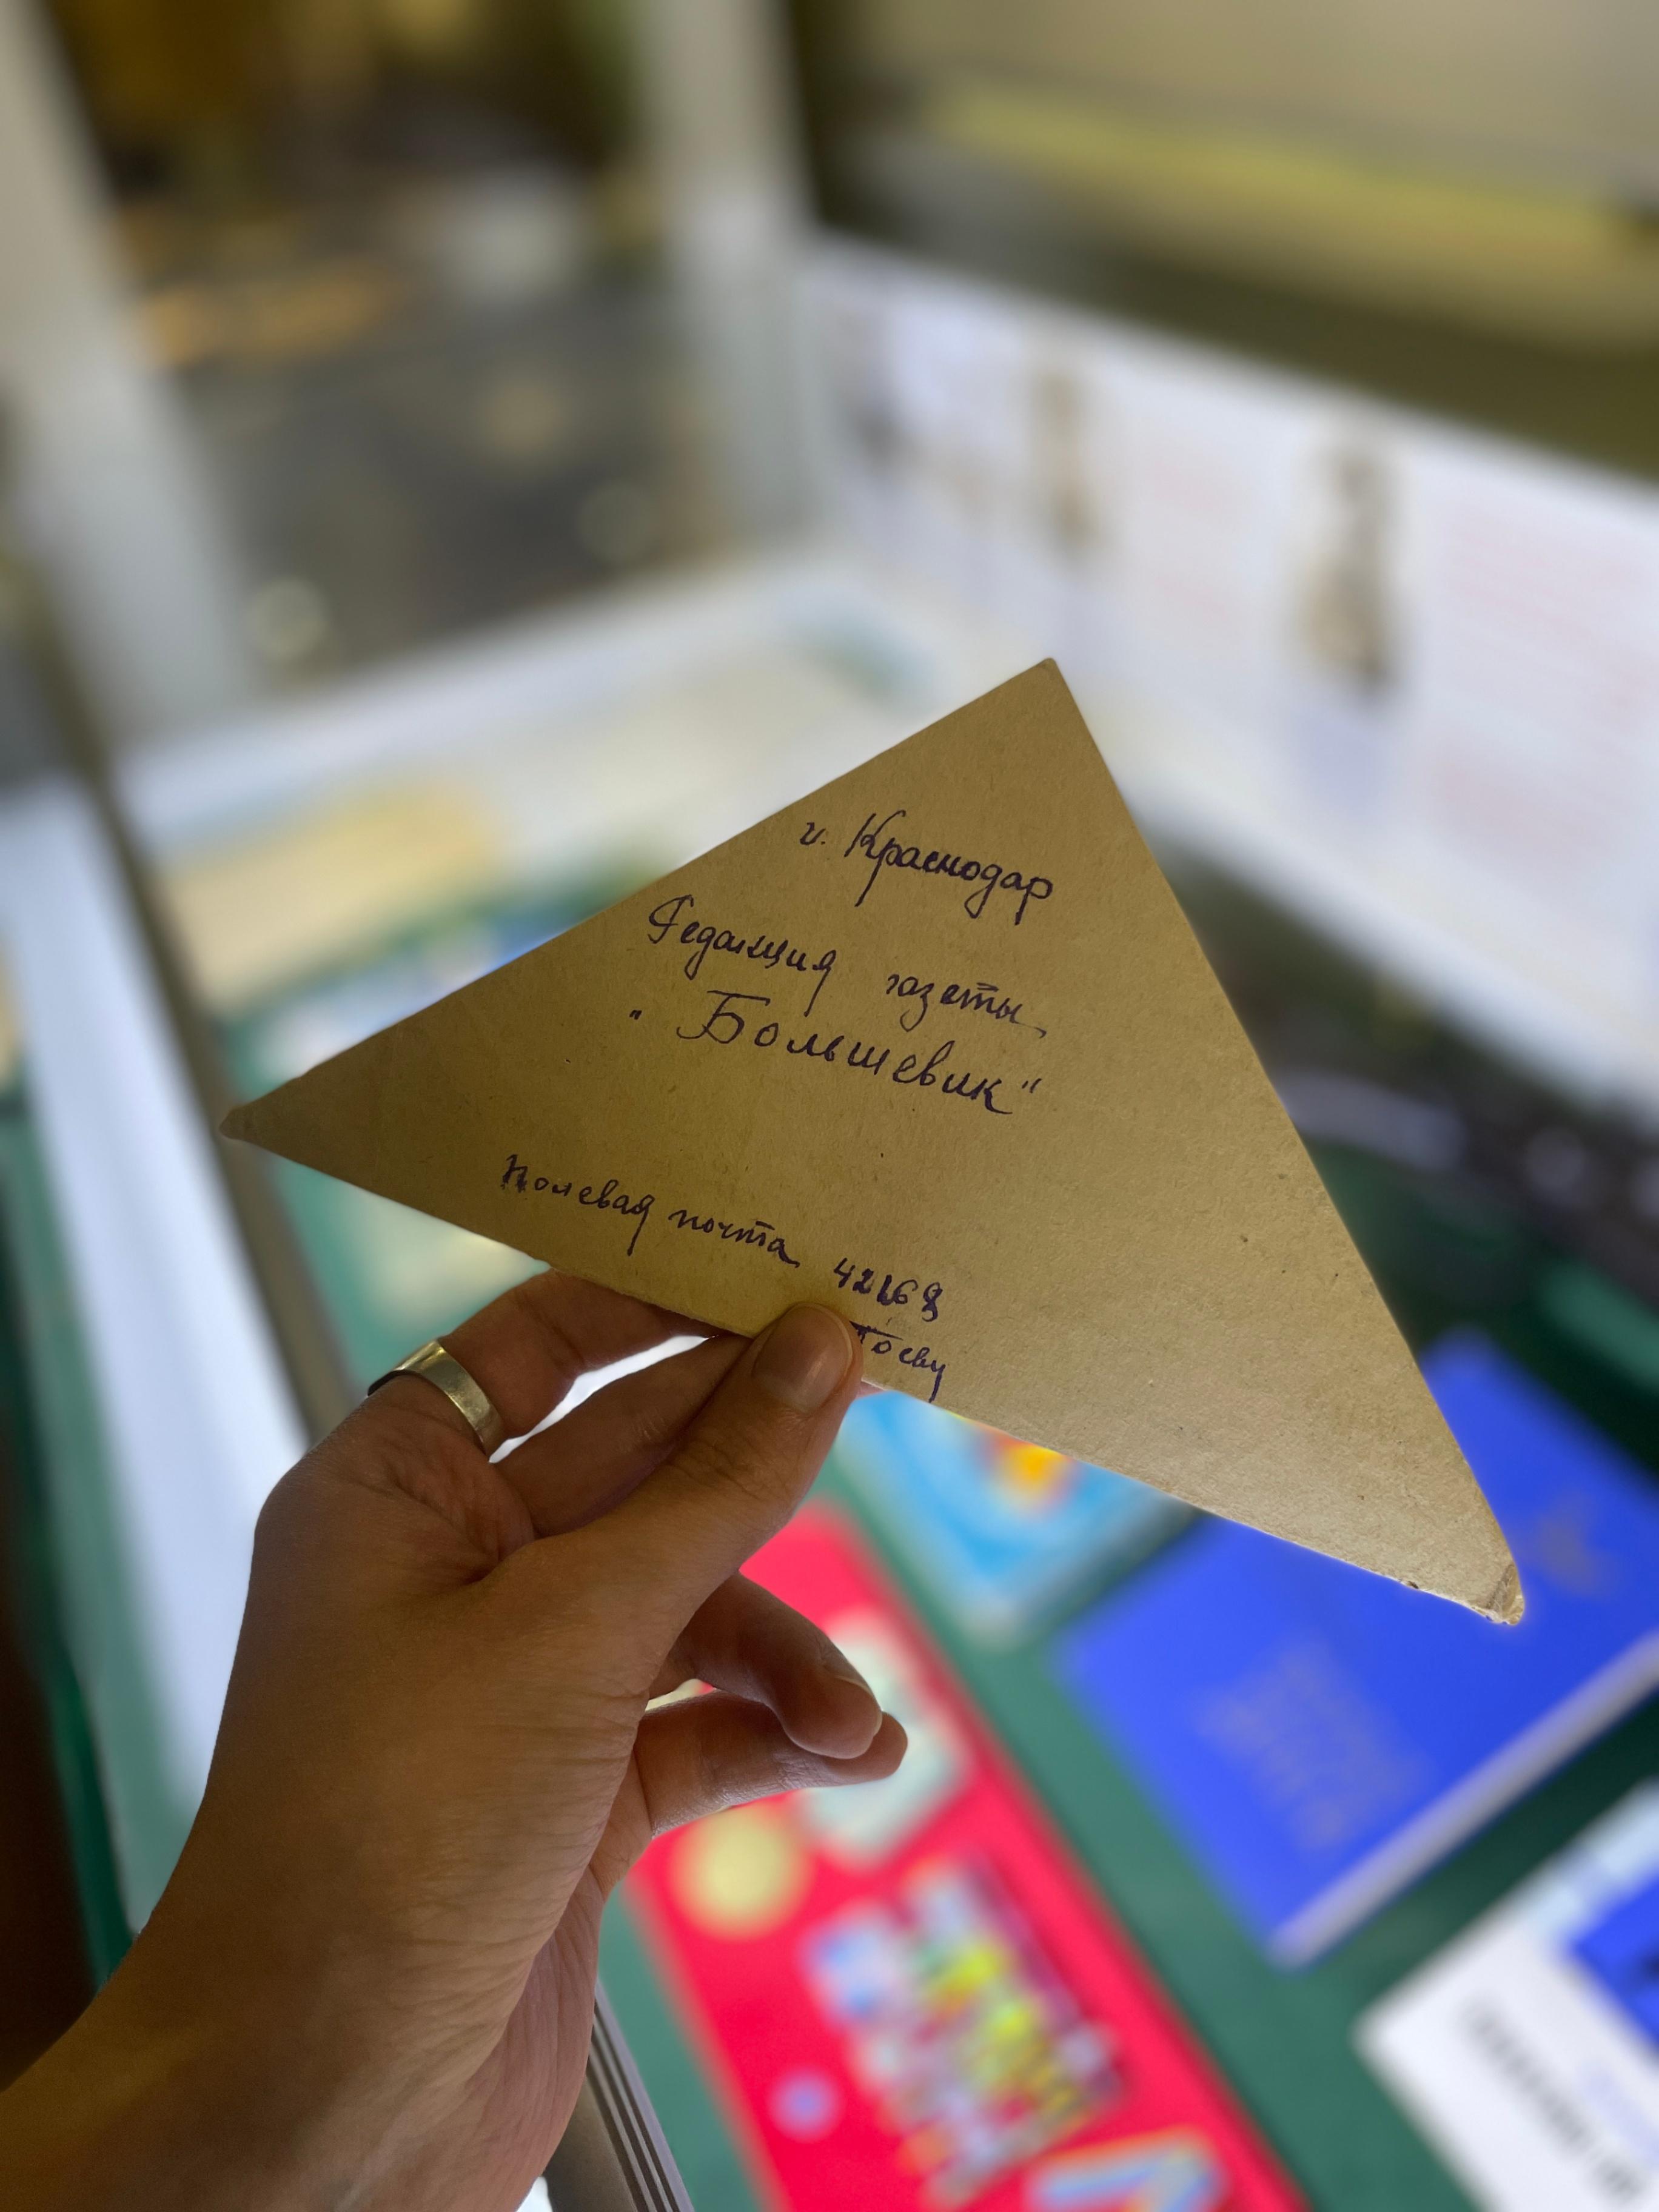 г. Краснодар
Редакция газеты
"Большевик"
Полевая почта 42168